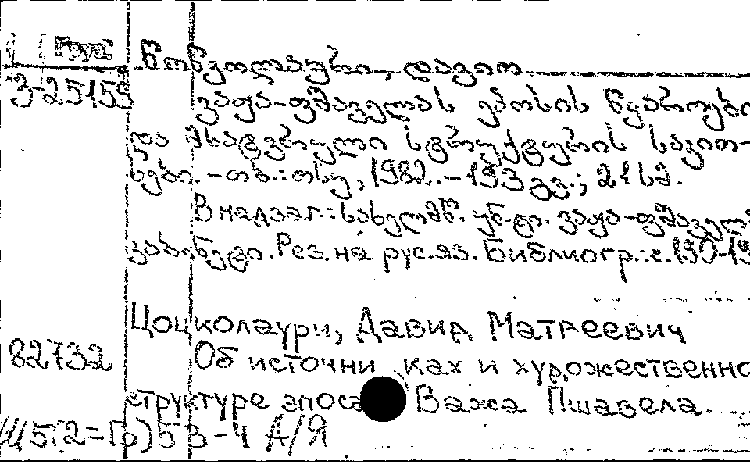 Груз
წოწკოლაური, დავით
3-25155
ვაჟა-ფშაველას ეპოსის წყაროები
და მხატვრული სტრუქტურის საკით-
ხები. – თბ.: თსუ, 1982. – 193 გვ.; 21 სმ.
В надзаг.: სახელმწ. უნ-ტი. ვაჟა-ფშაველა
კაბინეტი. Рез. на рус. яз. Библиогр.: с. 190-19
Цоцколаури, Давид Матвеевич
82732 Об источниках и художественно
структуре эпоса Важа Пшавела.
Ш5(2=Гр)5 3-4 А/Я